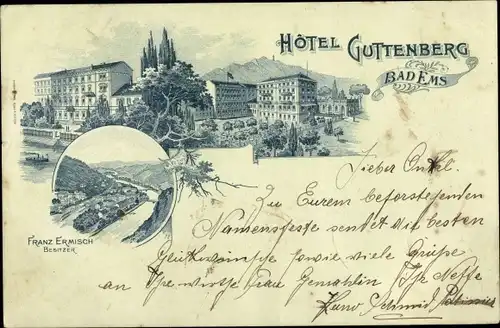 HÔTEL GUTTENBERG
BAD EMS
FRANZ ERMISCH
BESITZER
Lieber Onkel.
Zu Eurem beforstehenden
Namensfeste sendet die besten
Glückwünsche sowie viele Grüsse
an Ihre werthe Frau Gemahlin Ihr Neffe
Hans Schmid